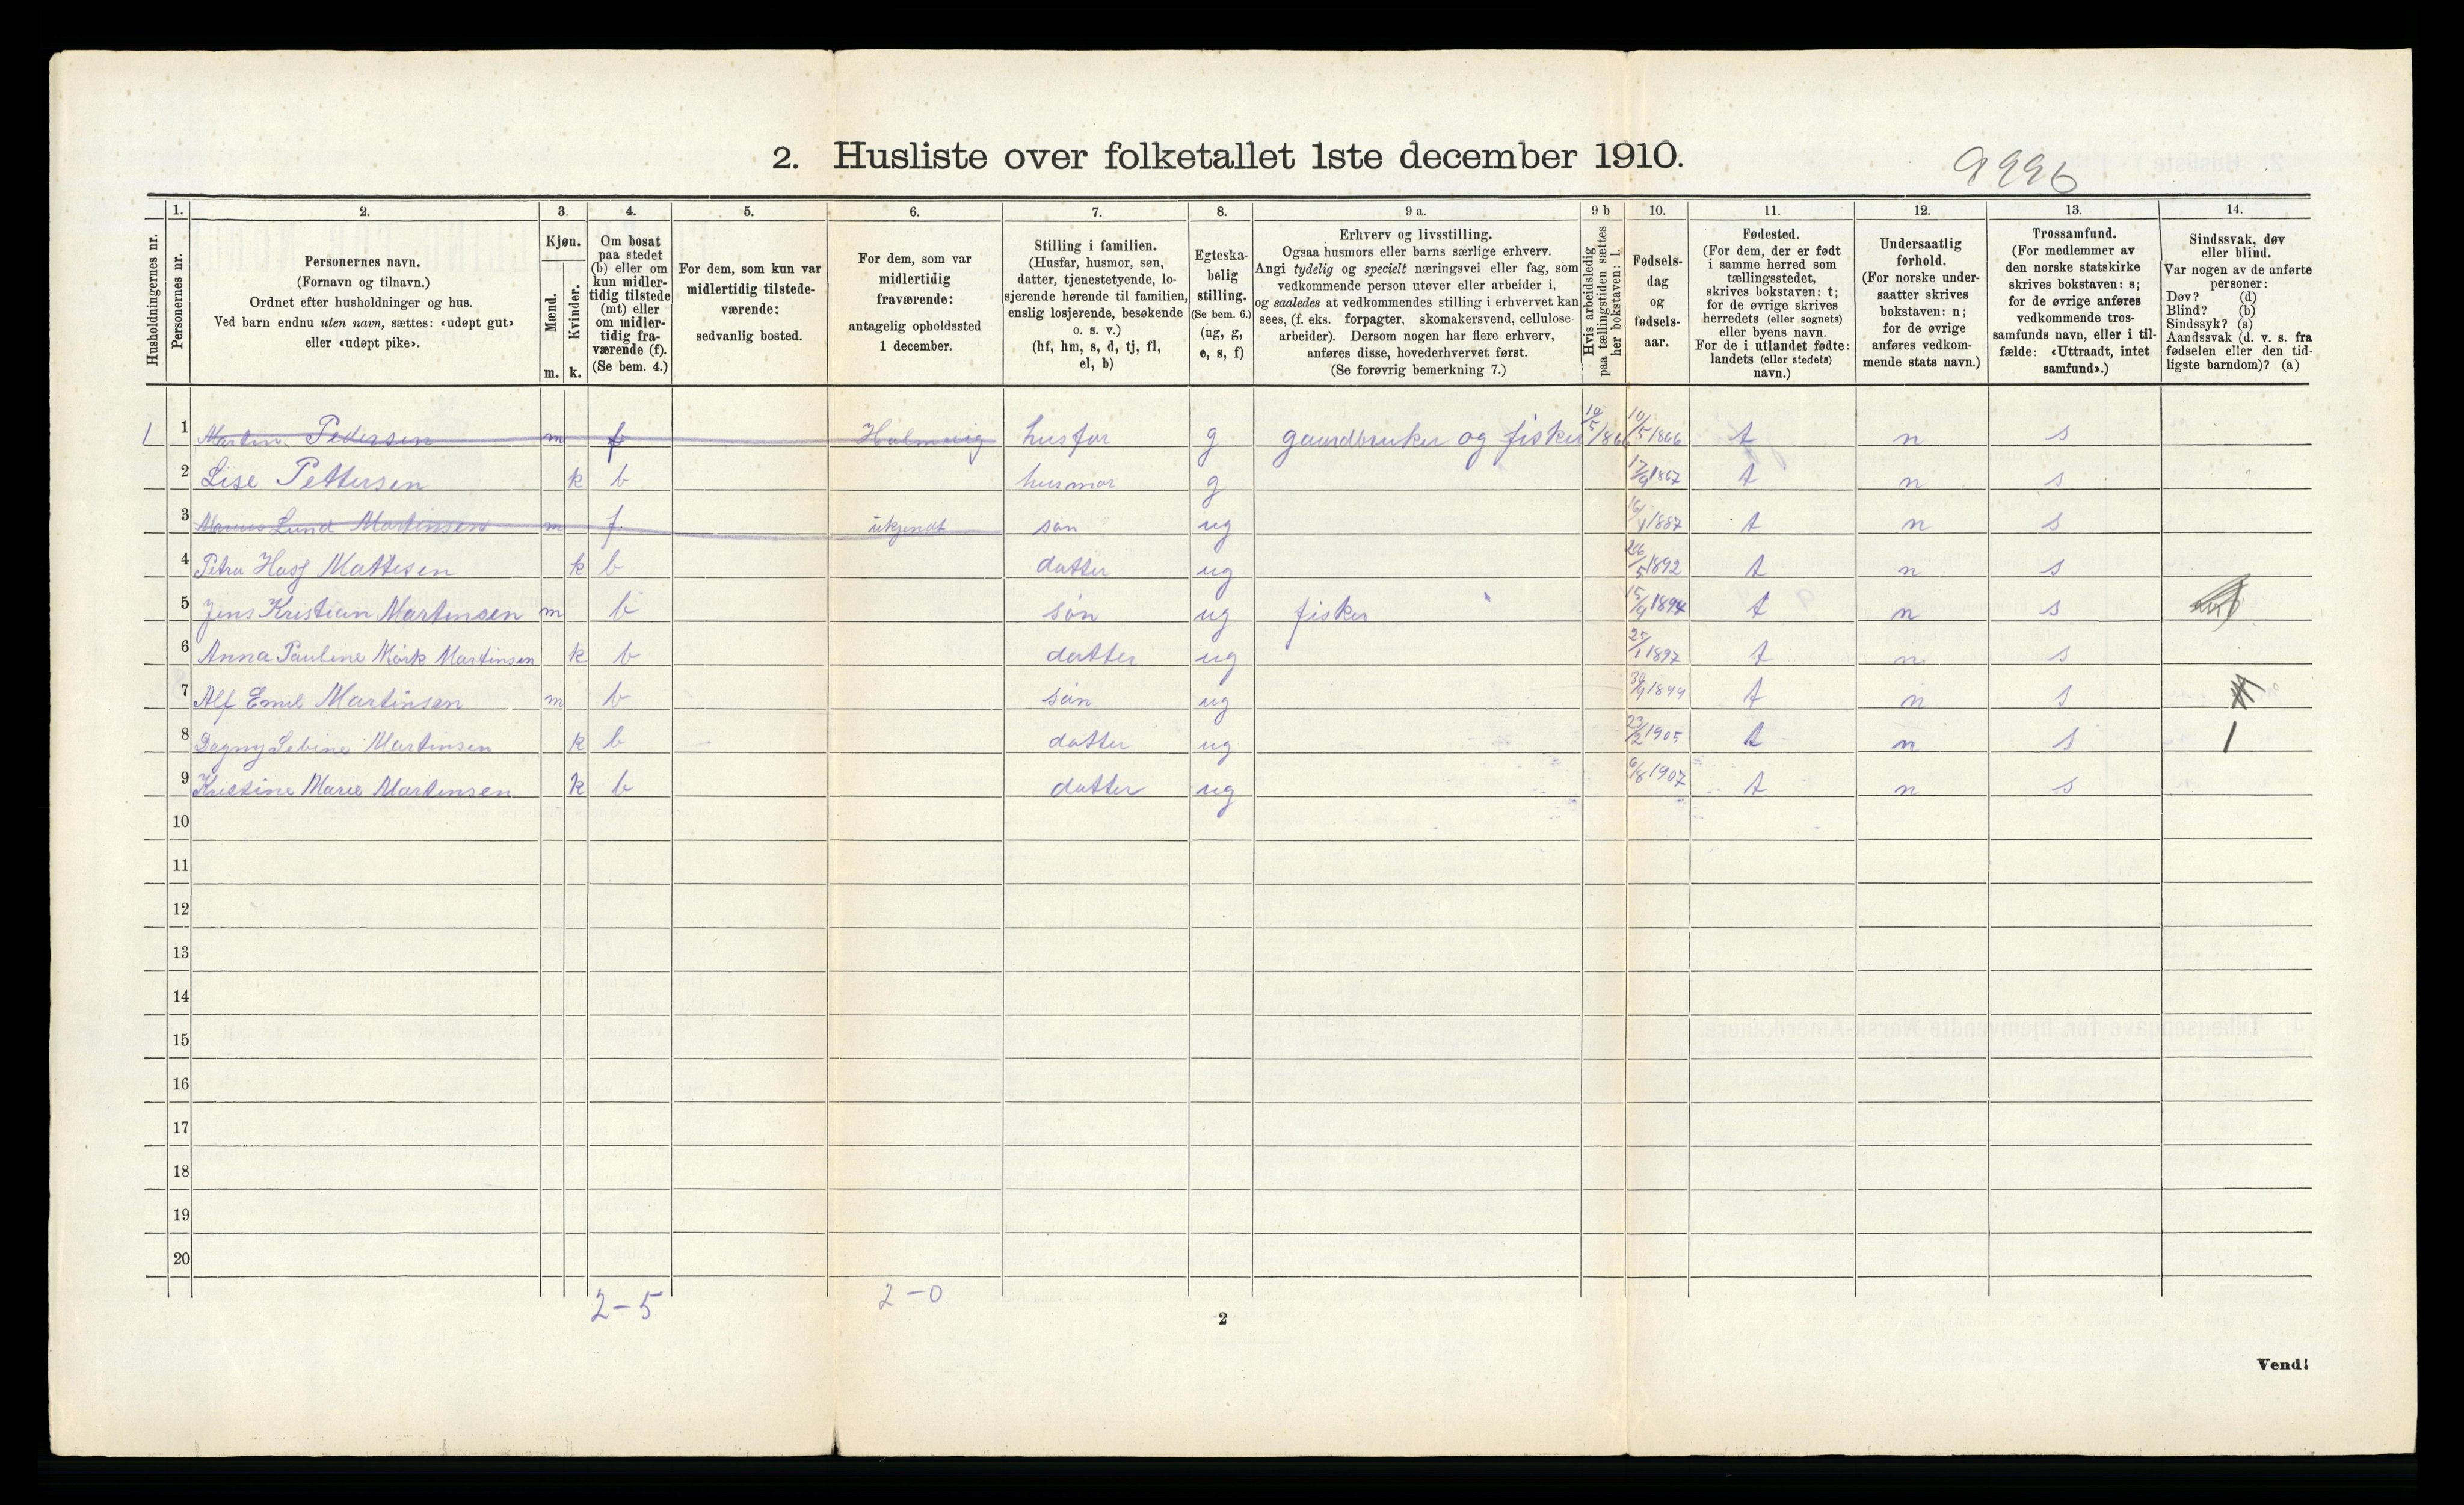 2. Husliste over folketallet 1ste december 1910.
9996
1. 2. 3. 4. 5. 6. 7. 8. 9 a. 9 b 10. 11. 12. 13. 14.
Husholdningernes nr.
Personernes nr.
Personernes navn.
(Fornavn og tilnavn.)
Ordnet efter husholdninger og hus.
Ved barn endnu uten navn, sættes: «udøpt gut»
eller «udøpt pike».
Kjøn.
Mænd.
Kvinder.
m. k.
Om bosat
paa stedet
(b) eller om
kun midler-
tidig tilstede
(mt) eller
om midler-
tidig fra-
værende (f).
(Se bem. 4.)
For dem, som kun var
midlertidig tilstede-
værende:
sedvanlig bosted.
For dem, som var
midlertidig
fraværende:
antagelig opholdssted
1 december.
Stilling i familien.
(Husfar, husmor, søn,
datter, tjenestetyende, lo-
sjerende hørende til familien,
enslig losjerende, besøkende
o. s. v.)
(hf, hm, s, d, tj, fl,
el, b)
Egteska-
belig
stilling.
(Se bem. 6.)
(ug, g,
e, s, f)
Erhverv og livsstilling.
Ogsaa husmors eller barns særlige erhverv.
Angi tydelig og specielt næringsvei eller fag, som
vedkommende person utøver eller arbeider i,
og saaledes at vedkommendes stilling i erhvervet kan
sees, (f. eks. forpagter, skomakersvend, cellulose-
arbeider). Dersom nogen har flere erhverv,
anføres disse, hovederhvervet først.
(Se forøvrig bemerkning 7.)
Hvis arbeidsledig
paa tællingstiden sættes
her bokstaven: l.
Fødsels-
dag
og
fødsels-
aar.
Fødested.
(For dem, der er født
i samme herred som
tællingsstedet,
skrives bokstaven: t;
for de øvrige skrives
herredets (eller sognets)
eller byens navn.
For de i utlandet fødte:
landets (eller stedets)
navn.)
Undersaatlig
forhold.
(For norske under-
saatter skrives
bokstaven: n;
for de øvrige
anføres vedkom-
mende stats navn.)
Trossamfund.
(For medlemmer av
den norske statskirke
skrives bokstaven: s;
for de øvrige anføres
vedkommende tros-
samfunds navn, eller i til-
fælde: «Uttraadt, intet
samfund».)
Sindssvak, døv
eller blind.
Var nogen av de anførte
personer:
Døv? (d)
Blind? (b)
Sindssyk? (s)
Aandssvak (d. v. s. fra
fødselen eller den tid-
ligste barndom)? (a)
1 1 Martin Pedersen m f husfar g gaardbruker og fisker 10/5 1866 10/5 1866 t n s
2 Lise Pettersen k b husmor g 17/9 1867 t n s
3 Lund Martinsen m f ukjendt søn ug 1887 t n s
4 Petra Mattisen k b datter ug 26/5 1892 t n s
5 Jens Kristian Martinsen m b søn ug fisker 15/9 1894 t n s
6 Anna Pauline Mørk Martinsen k b datter ug 25/1 1897 t n s
7 Alf Emil Martinsen m b søn ug 30/9 1899 t n s
8 Dagny Sebine Martinsen k b datter ug 23/2 1905 t n s
9 Kristine Marie Martinsen k b datter ug 6/8 1907 t n s
10
11
12
13
14
15
16
17
18
19
20
2-5 2-0
2
Vend!